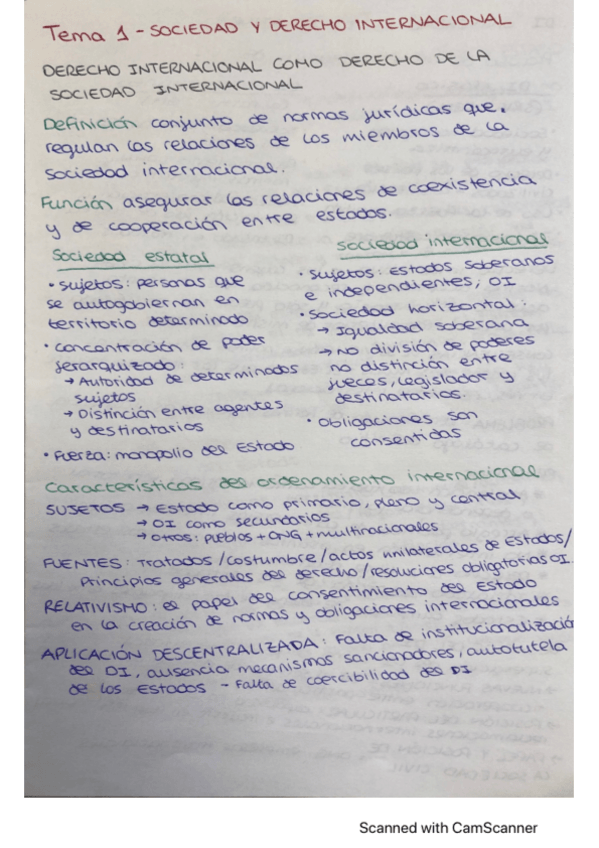 Tema 1 - SOCIEDAD Y DERECHO INTERNACIONAL
DERECHO INTERNACIONAL COMO DERECHO DE LA
SOCIEDAD INTERNACIONAL
Definición conjunto de normas jurídicas que
regulan las relaciones de los miembros de la
sociedad internacional.
Función asegurar las relaciones de coexistencia
y de cooperación entre estados.
Sociedad estatal
• Sujetos: personas que
se autogobiernan en
territorio determinado
• Concentración de poder
jerarquizado:
→ Autoridad de determinados
sujetos
→ Distinción entre agentes
y destinatarios
• Fuerza: monopolio del Estado
Sociedad internacional
• Sujetos: estados soberanos
e independientes, OI
• Sociedad horizontal:
→ Igualdad soberana
→ no división de poderes
no distinción entre
jueces, legislador y
destinatarios.
• Obligaciones son
consentidas
Características del ordenamiento internacional
SUJETOS → Estado como primario, pleno y central
→ OI como secundarios
→ Otros: pueblos + ONG + multinacionales
FUENTES: Tratados / costumbre / actos unilaterales de Estados /
Principios generales del derecho / resoluciones obligatorias OI.
RELATIVISMO: el papel del consentimiento del Estado
en la creación de normas y obligaciones internacionales
APLICACIÓN DESCENTRALIZADA: Falta de institucionalización
del DI, ausencia mecanismos sancionadores, autotutela
de los Estados - Falta de coercibilidad del DI
Scanned with CamScanner